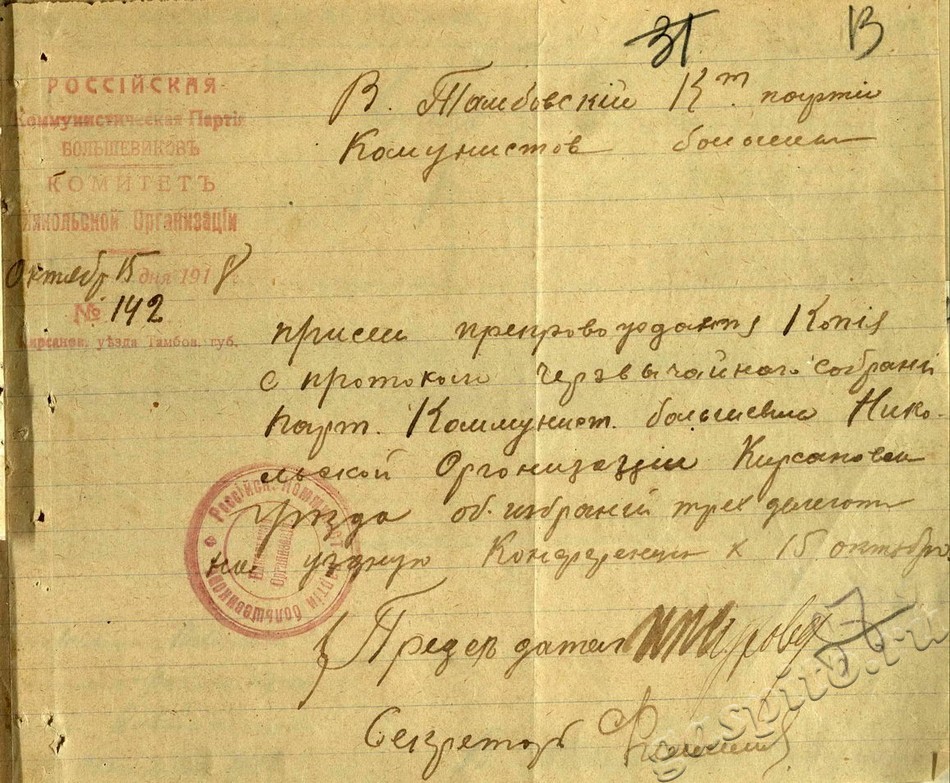 31 13
РОССІЙСКАЯ
Коммунистическая Партія
БОЛЬШЕВИКОВЪ
КОМИТЕТЪ
Никольской Организаціи
Октябр 15 дня 1918
№ 142
Кирсанов. уѣзда Тамбов. губ.
В. Тамбовскій К-т. партіи
Комунистов
присем Копія
с протокола черезвычайного собраній
парт. Коммунист. большевик Нико-
льской Организаціи Кирсановск
уезда об. избраній трех делегат
на уездную Конференцію к 15 октября
Предсъдател
Секретарь
Российск. Коммунист. партіи большевиков